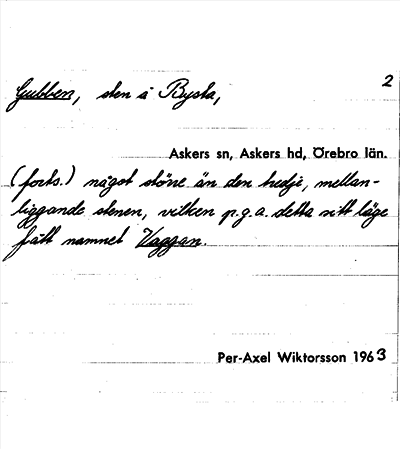 2
Gubben, sten å Bysta,
Askers sn, Askers hd, Örebro län.
(forts.) något större än den tredje, mellan-
liggande stenen, vilken p.g.a. detta sitt läge
fått namnet Vaggan.
Per-Axel Wiktorsson 1963